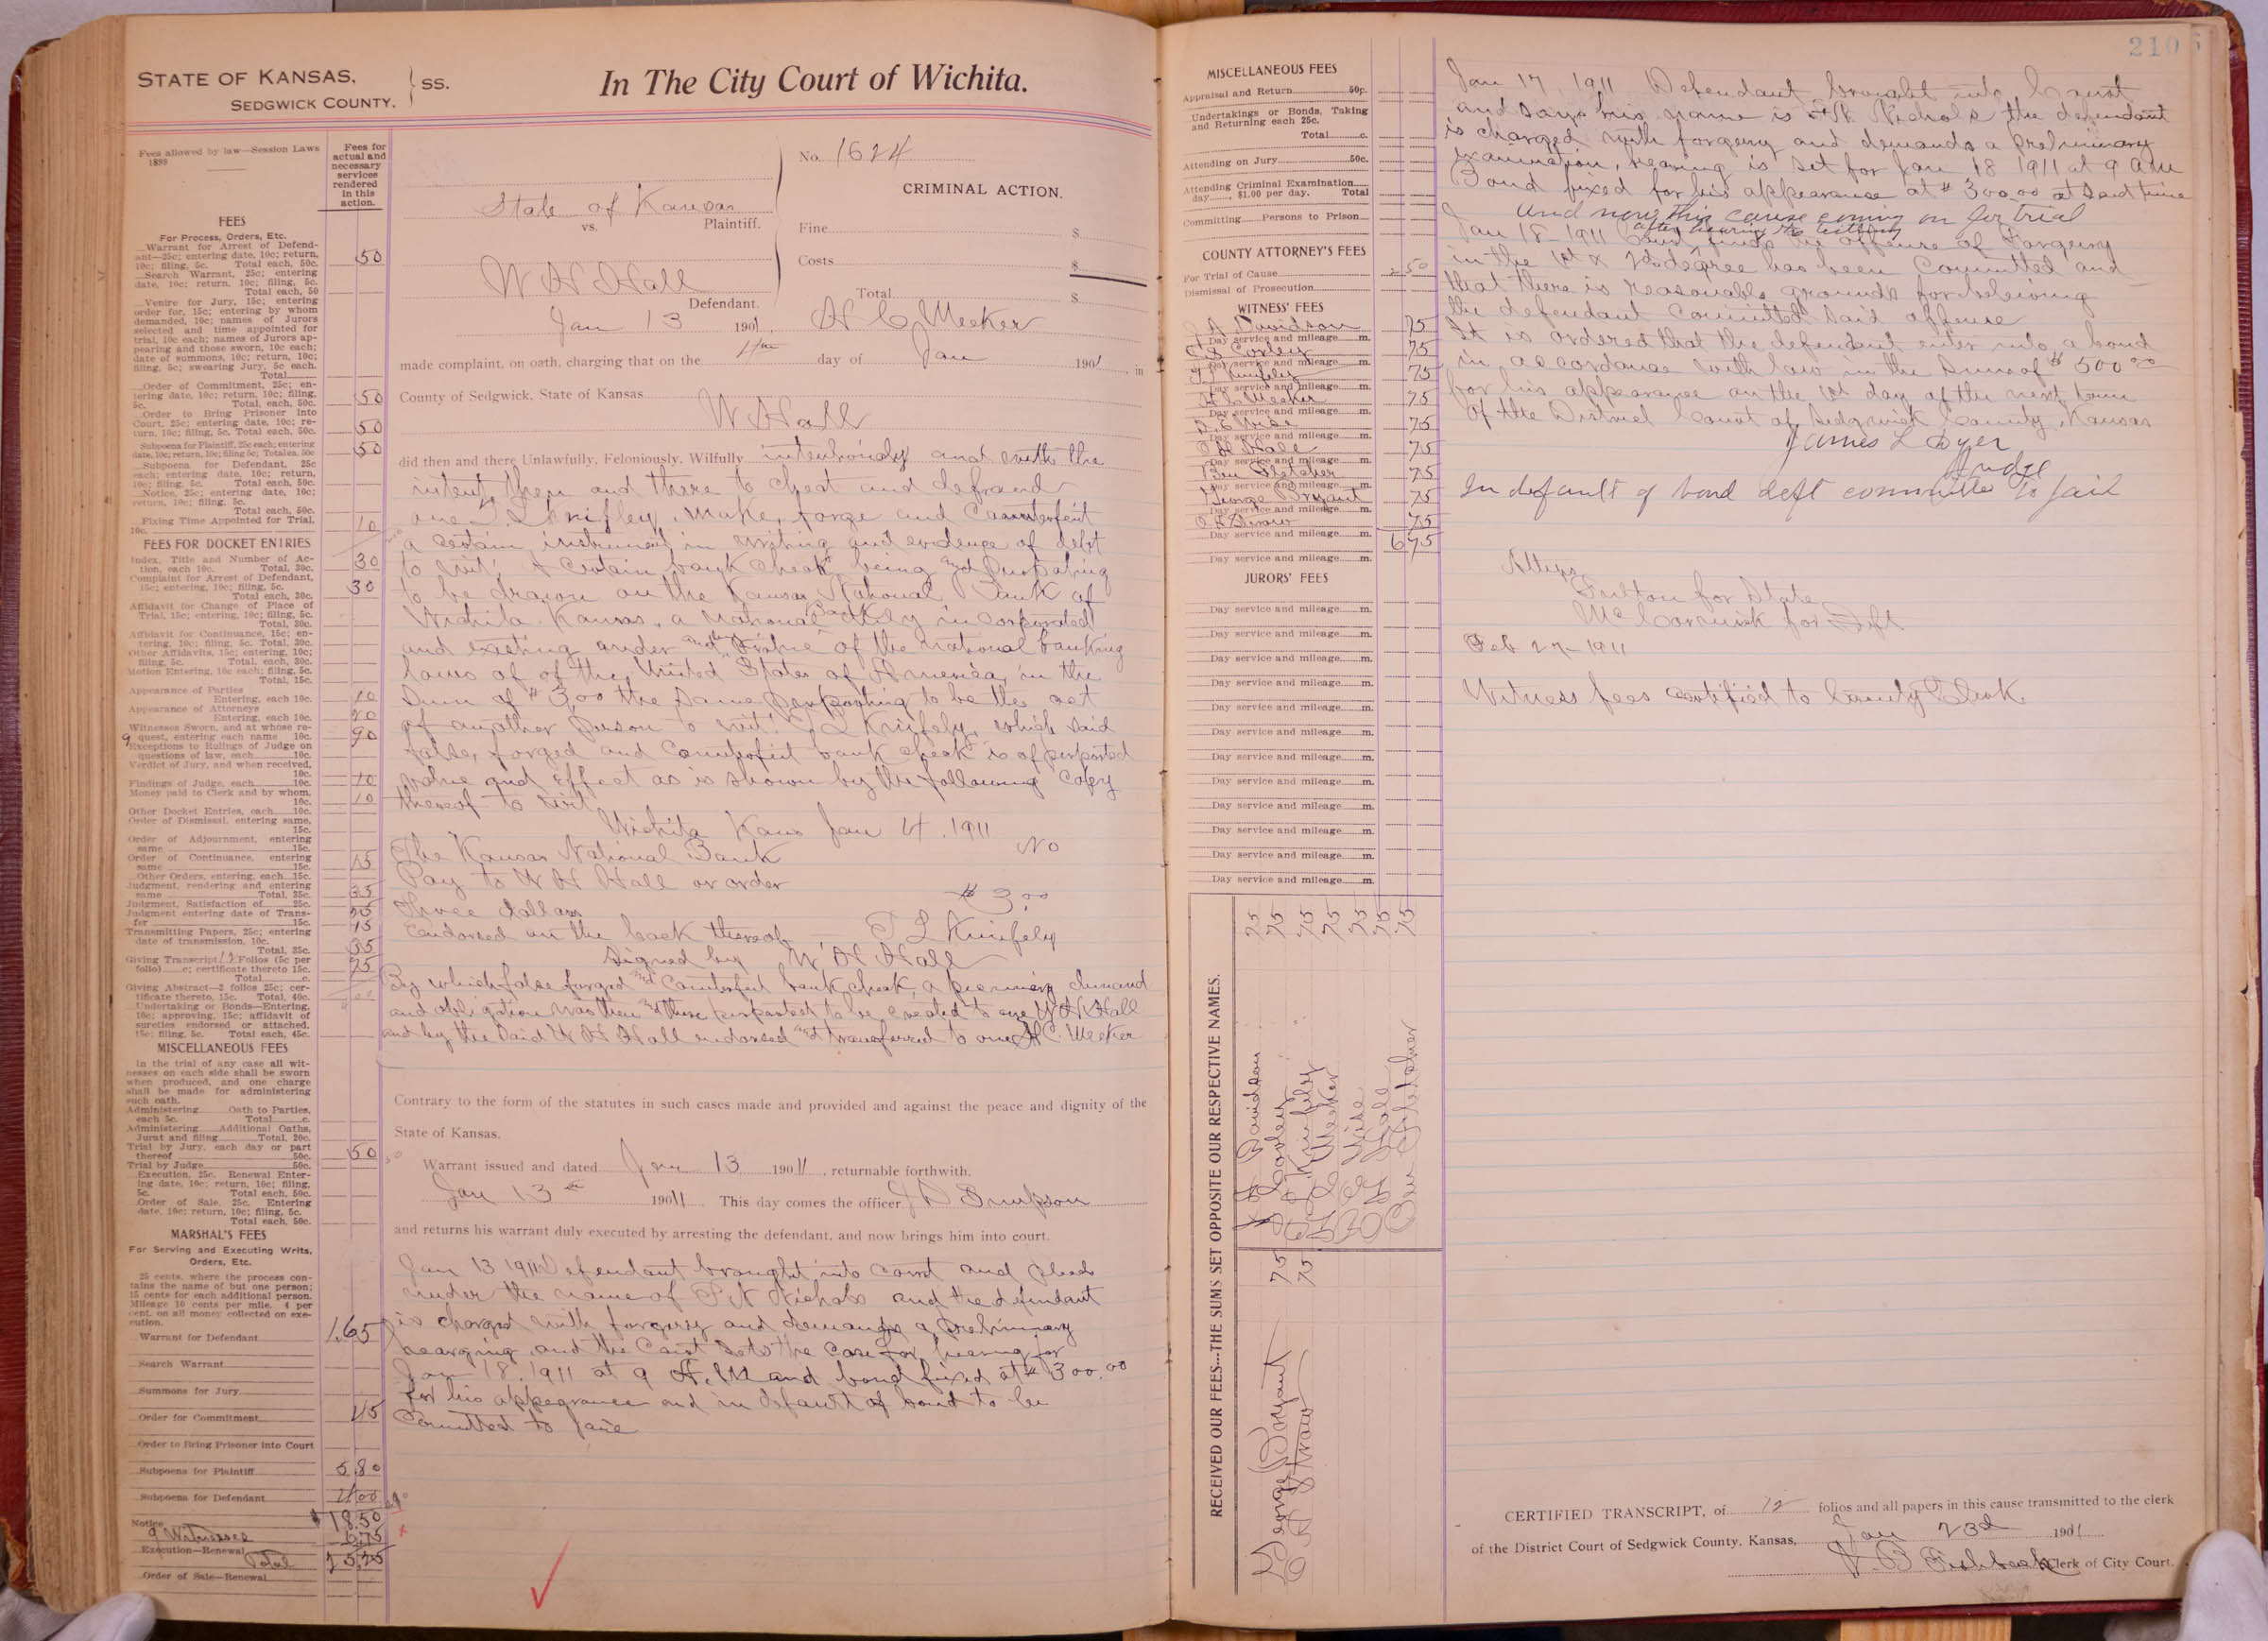 STATE OF KANSAS,
SEDGWICK COUNTY.
SS.
In The City Court of Wichita.
Fees allowed by law—Session Laws
1899
Fees for
actual and
necessary
services
rendered
in this
action.
FEES
For Process, Orders, Etc.
Warrant for Arrest of Defend-
ant—25c; entering date, 10c; return,
10c; filing, 5c. Total each, 50c. 50
Search Warrant, 25c; entering
date, 10c; return, 10c; filing, 5c.
Total each, 50
Venire for Jury, 15c; entering
order for, 15c; entering by whom
demanded, 10c; names of Jurors
selected and time appointed for
trial, 10c each; names of Jurors ap-
pearing and those sworn, 10c each;
date of summons, 10c; return, 10c;
filing, 5c; swearing Jury, 5c each.
Total
Order of Commitment, 25c; en-
tering date, 10c; return, 10c; filing,
5c. Total each, 50c. 50
Order to Bring Prisoner into
Court, 25c; entering date, 10c; re-
turn, 10c; filing, 5c. Total each, 50c. 50
Subpoena for Plaintiff, 25c each; entering
date, 10c; return, 10c; filing 5c; Total ea. 50c 50
Subpoena for Defendant, 25c
each; entering date, 10c; return,
10c; filing, 5c. Total each, 50c.
Notice, 25c; entering date, 10c;
return, 10c; filing, 5c.
Total each, 50c.
Fixing Time Appointed for Trial,
10c. 10
FEES FOR DOCKET ENTRIES
Index, Title and Number of Ac-
tion, each 10c. Total, 30c. 30
Complaint for Arrest of Defendant,
15c; entering, 10c; filing, 5c.
Total each, 30c. 30
Affidavit for Change of Place of
Trial, 15c; entering, 10c; filing, 5c.
Total, 30c.
Affidavit for Continuance, 15c; en-
tering, 10c; filing, 5c. Total, 30c.
Other Affidavits, 15c; entering, 10c;
filing, 5c. Total, each, 30c.
Motion Entering, 10c each; filing, 5c.
Total, 15c.
Appearance of Parties
Entering, each 10c. 10
Appearance of Attorneys
Entering, each 10c. 20
Witnesses Sworn, and at whose re-
9 quest, entering each name 10c. 90
Exceptions to Rulings of Judge on
questions of law, each 10c.
Verdict of Jury, and when received,
10c.
Findings of Judge, each 10c. 10
Money paid to Clerk and by whom,
10c. 10
Other Docket Entries, each 10c.
Order of Dismissal, entering same,
15c.
Order of Adjournment, entering
same 15c.
Order of Continuance, entering
same 15c. 15
Other Orders, entering, each 15c.
Judgment, rendering and entering
same Total, 35c. 35
Judgment, Satisfaction of 25c.
Judgment entering date of Trans-
fer 15c. 15
Transmitting Papers, 25c; entering
date of transmission, 10c.
Total, 35c. 35
Giving Transcript 12 Folios (5c per
folio) c; certificate thereto 15c. 75
Total c.
Giving Abstract—2 folios 25c; cer-
tificate thereto, 15c. Total, 40c.
Undertaking or Bonds—Entering,
10c; approving, 15c; affidavit of
sureties endorsed or attached,
15c; filing, 5c. Total each, 45c.
MISCELLANEOUS FEES
In the trial of any case all wit-
nesses on each side shall be sworn
when produced, and one charge
shall be made for administering
such oath.
Administering Oath to Parties,
each 5c. Total c.
Administering Additional Oaths,
Jurat and filing Total, 20c.
Trial by Jury, each day or part
thereof 50c. 50
Trial by Judge 50c.
Execution, 25c. Renewal Enter-
ing date, 10c; return, 10c; filing,
5c. Total each, 50c.
Order of Sale, 25c. Entering
date, 10c; return, 10c; filing, 5c.
Total each, 50c.
MARSHAL'S FEES
For Serving and Executing Writs,
Orders, Etc.
25 cents, where the process con-
tains the name of but one person;
15 cents for each additional person.
Mileage 10 cents per mile. 4 per
cent. on all money collected on exe-
cution.
Warrant for Defendant 1.65
Search Warrant
Summons for Jury
Order for Commitment 45
Order to Bring Prisoner into Court
Subpoena for Plaintiff 5 80
Subpoena for Defendant
Notice $ 18.50
9 Witnesses 6.75
Execution—Renewal Total 25.25
Order of Sale—Renewal
No. 1624
CRIMINAL ACTION.
State of Kansas
vs. Plaintiff.
Fine $
W H Hall
Costs $
Defendant.
Total $
Jan 13 1911, H C Meeker
made complaint, on oath, charging that on the 4th day of Jan 1901, in
County of Sedgwick, State of Kansas
W H Hall
did then and there Unlawfully, Feloniously, Wilfully intentionaly and with the
intent, then and there to cheat and defraud
one T L Knifley, make, forge and Counterfeit
a certain instrument in writing and evidence of debt
to wit: A certain bank check being and Purpoting
to be drawn on the Kansas National Bank of
Wichita Kansas, a National Bank duly incorporated
and existing under and by virtue of the national banking
laws of of the United States of America, in the
Sum of $ 3.00 the same purpoting to be the act
of another person to wit: T L Knifely, which said
false, forged and counterfeit bank check is of purported
value and effect as is shown by the following copy
thereof to wit
Wichita Kans Jan 4. 1911
The Kansas National Bank No
Pay to W H Hall or order
Three dollars $ 3.00
Endorsed on the back thereof — T L Knifely
Signed by W H Hall
By which false forged and Counterfeit bank check, a demand
and obligation was then and there purported to be created to one W H Hall
and by the said W H Hall endorsed and transferred to one H C. Meeker
Contrary to the form of the statutes in such cases made and provided and against the peace and dignity of the
State of Kansas.
Warrant issued and dated Jan 13 1911, returnable forthwith.
Jan 13th 1911. This day comes the officer J D Simpson
and returns his warrant duly executed by arresting the defendant, and now brings him into court.
Jan 13 1911 Defendant brought into court and pleads
under the name of F W Nichols and the defendant
is charged with forgery and demands a Preliminary
hearing, and the Court sets the case for hearing for
Jan 18. 1911 at 9 A.M and bond fixed at $ 300.00
for his appearance and in default of bond to be
Committed to Jail
MISCELLANEOUS FEES
Appraisal and Return 50p.
Undertakings or Bonds, Taking
and Returning each 25c.
Total c.
Attending on Jury 50c.
Attending Criminal Examination
day , $1.00 per day. Total
Committing Persons to Prison
COUNTY ATTORNEY'S FEES
For Trial of Cause 2 50
Dismissal of Prosecution
WITNESS' FEES
J A Davidson 75
Day service and mileage m.
C S Corley 75
Day service and mileage m.
T L Knifely 75
Day service and mileage m.
H C Meeker 75
Day service and mileage m.
D. E Wise 75
Day service and mileage m.
O H Hall 75
Day service and mileage m.
Ben Fletcher 75
Day service and mileage m.
George Bryant 75
Day service and mileage m.
C A Straw 75
Day service and mileage m. 6 75
Day service and mileage m.
JURORS' FEES
Day service and mileage m.
Day service and mileage m.
Day service and mileage m.
Day service and mileage m.
Day service and mileage m.
Day service and mileage m.
Day service and mileage m.
Day service and mileage m.
Day service and mileage m.
Day service and mileage m.
Day service and mileage m.
Day service and mileage m.
RECEIVED OUR FEES---THE SUMS SET OPPOSITE OUR RESPECTIVE NAMES.
J A Davidson 75
C S Corley 75
T L Knifely 75
H C Meeker 75
D E Wise 75
O H Hall 75
Ben Fletcher 75
George Bryant 75
C A Straw 75
210
Jan 17, 1911 Defendant brought into Court
and says his name is F W Nichols the defendant
is charged with forgery and demands a Preliminary
examination, hearing is set for Jan 18 1911 at 9 am
Bond fixed for his appearance at $ 300.00 at said time
And now this cause coming on for trial
after hearing the testimony
Jan 18-1911 Court finds the offense of Forgery
in the 1st & 2nd degree has been Committed and
that there is reasonable grounds for beleiving
the defendant committed said offense
It is ordered that the defendant enter into a bond
in accordance with law in the Sum of $ 500.00
for his appearance on the 1st day of the next term
of the District Court of Sedgwick County, Kansas
James L Dyer
Judge
In default of bond deft committed to jail
Attys
Sutton for State
McCormick for Deft
Feb 27-1911
Witness fees certified to County Clerk
CERTIFIED TRANSCRIPT, of 12 folios and all papers in this cause transmitted to the clerk
of the District Court of Sedgwick County, Kansas, Jan 23d 1911
Clerk of City Court.